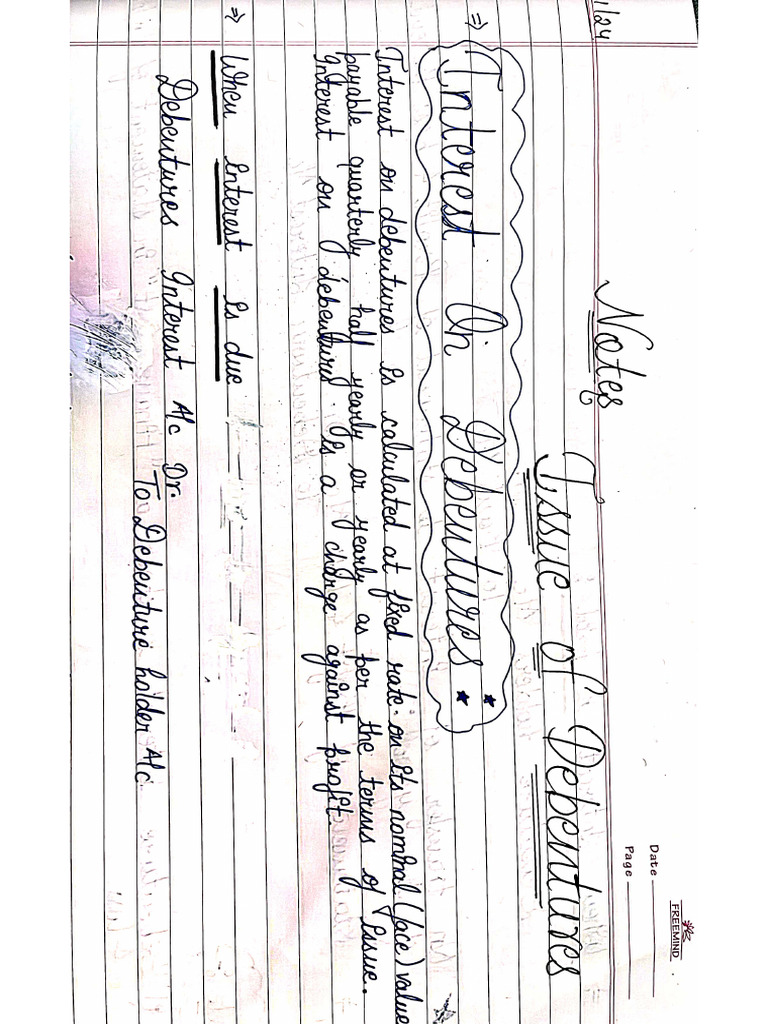 1/24
FREEMIND
Date
Page
Notes
Issue of Debentures
⇒ Interest On Debentures ★★
Interest on debentures is calculated at fixed rate. on its nominal (face) value
payable quarterly half yearly or yearly as per the terms of Issue.
Interest on debentures. Is a charge against profit.
⇒ When Interest is due
Debentures Interest A/c Dr.
To Debenture holder A/c